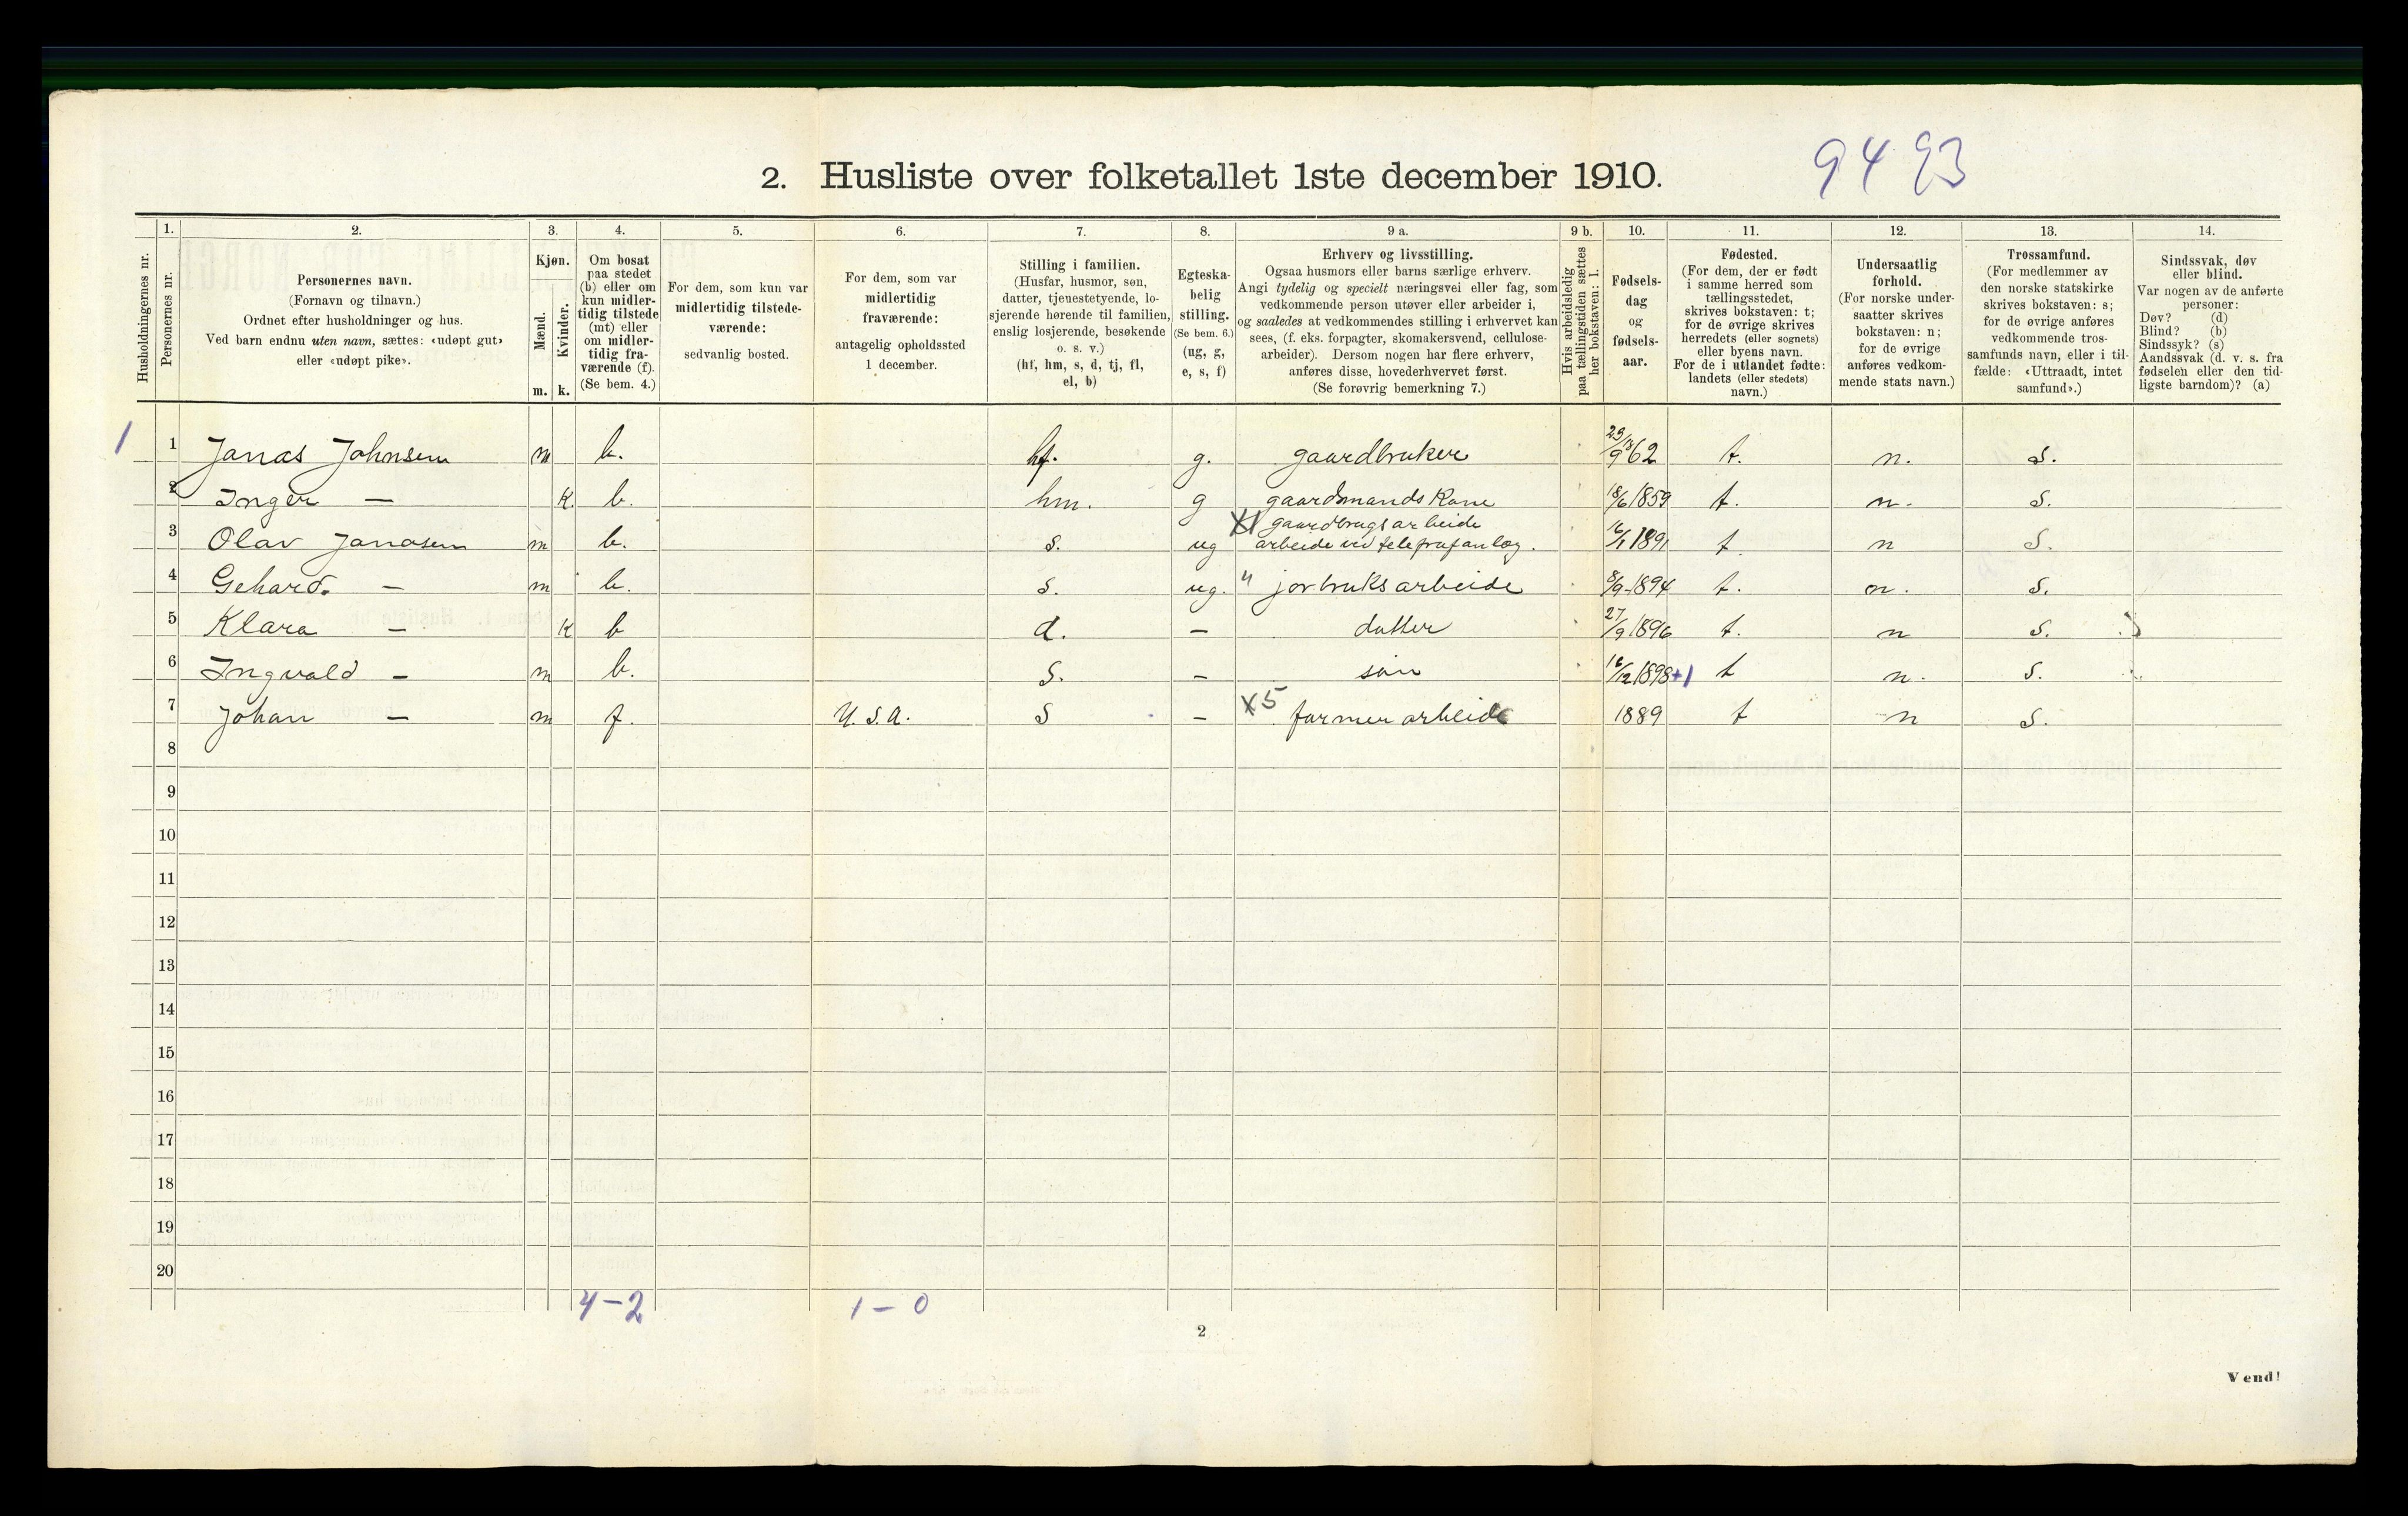 2. Husliste over folketallet 1ste december 1910.
94 93
Husholdningernes nr.
1.
Personernes nr.
2.
Personernes navn.
(Fornavn og tilnavn.)
Ordnet efter husholdninger og hus.
Ved barn endnu uten navn, sættes: «udøpt gut»
eller «udøpt pike».
3.
Kjøn.
Mænd.
m.
Kvinder.
k.
4.
Om bosat
paa stedet
(b) eller om
kun midler-
tidig tilstede
(mt) eller
om midler-
tidig fra-
værende (f).
(Se bem. 4.)
5.
For dem, som kun var
midlertidig tilstede-
værende:
sedvanlig bosted.
6.
For dem, som var
midlertidig
fraværende:
antagelig opholdssted
1 december.
7.
Stilling i familien.
(Husfar, husmor, søn,
datter, tjenestetyende, lo-
sjerende hørende til familien,
enslig losjerende, besøkende
o. s. v.)
(hf, hm, s, d, tj, fl,
el, b)
8.
Egteska-
belig
stilling.
(Se bem. 6.)
(ug, g,
e, s, f)
9 a.
Erhverv og livsstilling.
Ogsaa husmors eller barns særlige erhverv.
Angi tydelig og specielt næringsvei eller fag, som
vedkommende person utøver eller arbeider i,
og saaledes at vedkommendes stilling i erhvervet kan
sees, (f. eks. forpagter, skomakersvend, cellulose-
arbeider). Dersom nogen har flere erhverv,
anføres disse, hovederhvervet først.
(Se forøvrig bemerkning 7.)
9 b.
Hvis arbeidsledig
paa tællingstiden sættes
her bokstaven: l.
10.
Fødsels-
dag
og
fødsels-
aar.
11.
Fødested.
(For dem, der er født
i samme herred som
tællingsstedet,
skrives bokstaven: t;
for de øvrige skrives
herredets (eller sognets)
eller byens navn.
For de i utlandet fødte:
landets (eller stedets)
navn.)
12.
Undersaatlig
forhold.
(For norske under-
saatter skrives
bokstaven: n;
for de øvrige
anføres vedkom-
mende stats navn.)
13.
Trossamfund.
(For medlemmer av
den norske statskirke
skrives bokstaven: s;
for de øvrige anføres
vedkommende tros-
samfunds navn, eller i til-
fælde: «Uttraadt, intet
samfund».)
14.
Sindssvak, døv
eller blind.
Var nogen av de anførte
personer:
Døv? (d)
Blind? (b)
Sindssyk? (s)
Aandssvak (d. v. s. fra
fødselen eller den tid-
ligste barndom)? (a)
1 1 Jonas Johnsen m b. hf. g. gaardbruker 62 t. n. S.
2 Inger — K. b. hm. g gaardmands Kone 18/6 1859 t. n. S.
3 Olav Jonasen m b. s. ug X1 gaardbrugsarbeide
arbeide ved telegrafanlæg. 16/1 1891 t. n S.
4 Gehard. — m b. s. ug. " jorbruksarbeide 8/9-1894 t. n. S.
5 Klara — K b d. — datter 27/9 1896 t. n S.
6 Ingvald — m b. S. — søn 16/12 1898 +1 t n. S.
7 Johan — m f. U. S. A. S — X5 farmer arbeide 1889 t n S.
8
9
10
11
12
13
14
15
16
17
18
19
20
4-2 1-0
2
Vend!